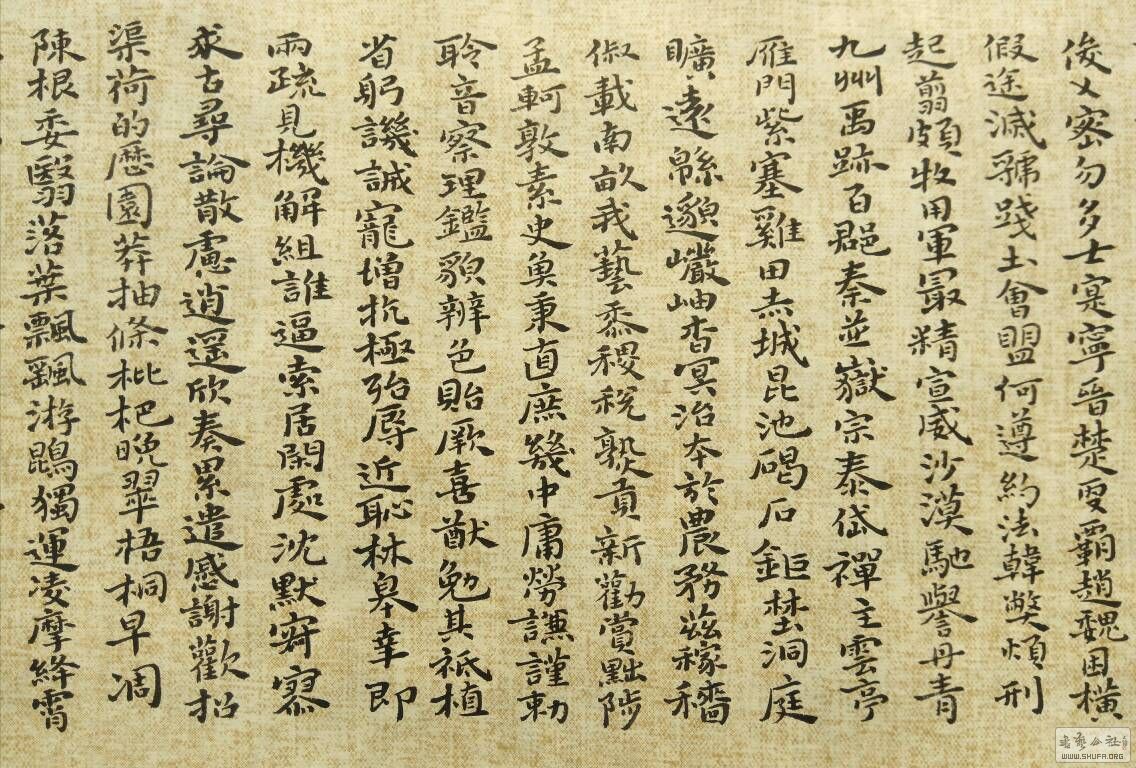 俊乂密勿多士寔寧晉楚更霸趙魏困橫
假途滅虢踐土會盟何遵約法韓弊煩刑
起翦頗牧用軍最精宣威沙漠馳譽丹青
九州禹跡百郡秦並嶽宗泰岱禪主雲亭
雁門紫塞雞田赤城昆池碣石鉅埜洞庭
曠遠緜邈巖岫杳冥治本於農務茲稼穡
俶載南畝我藝黍稷稅熟貢新勸賞黜陟
孟軻敦素史魚秉直庶幾中庸勞謙謹勅
聆音察理鑑貌辨色貽厥嘉猷勉其祗植
省躬譏誡寵增抗極殆辱近恥林皋幸即
兩疏見機解組誰逼索居閑處沈默寂寥
求古尋論散慮逍遙欣奏累遣慼謝歡招
渠荷的歷園莽抽條枇杷晚翠梧桐早凋
陳根委翳落葉飄颻游鵾獨運凌摩絳霄
書藝公社
WWW.SHUFA.ORG